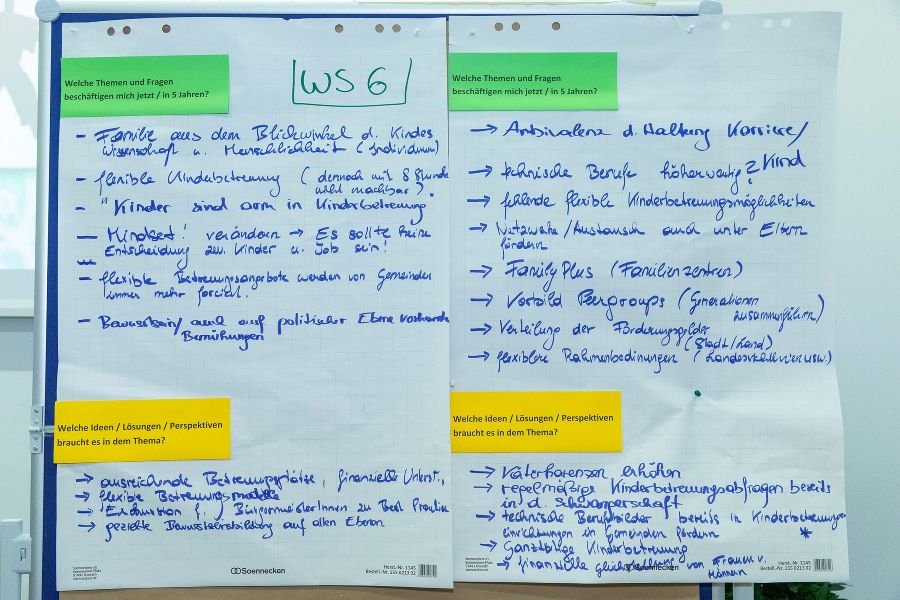 Welche Themen und Fragen
beschäftigen mich jetzt / in 5 Jahren?
WS 6
- Familie aus dem Blickwinkel d. Kindes
Wissenschaft u. Menschlichkeit (Individuum)
- flexible Kinderbetreuung (dennoch mit 8 Stunde
nicht machbar).
- "Kinder sind arm in Kinderbetreuung
- Mindset! verändern → Es sollte keine
Entscheidung zw. Kinder u. Job sein!
- flexible Betreuungsangebote werden von Gemeinden
immer mehr forciert.
- Bewusstsein/ auch auf politischer Ebene vorhanden
Bemühungen
Welche Ideen / Lösungen / Perspektiven
braucht es in dem Thema?
→ ausreichende Betreuungsplätze, finanzielle Unterst.,
→ flexible Betreuungsmodelle
→ Exkursion f. BürgermeisterInnen zu Best Practice
→ gezielte Bewusstseinsbildung auf allen Ebenen
Soennecken eG
Soennecken-Platz
51491 Overath
soennecken.de
Soennecken
Herst.-Nr. 1145
Bestell.-Nr. 155 0213 02
Welche Themen und Fragen
beschäftigen mich jetzt / in 5 Jahren?
→ Ambivalenz d. Haltung Karriere/
Kind
→ technische Berufe höherwertig?
→ fehlende flexible Kinderbetreuungsmöglichkeiten
→ Netzwerke/Austausch auch unter Eltern
fördern
→ FamilyPlus (Familienzentren)
→ Vorbild Peergroups (Generationen
zusammenführen)
→ Verteilung der Förderungsgelder
(Stadt/Land)
→ flexiblere Rahmenbedingungen (
usw.)
Welche Ideen / Lösungen / Perspektiven
braucht es in dem Thema?
→ Väterkarenzen erhöhen
→ regelmäßige Kinderbetreuungsabfragen bereits
in d. Schwangerschaft
→ technische Berufsbilder bereits in Kinderbetreuungs
einrichtungen in Gemeinden fördern *
→ Ganztägige Kinderbetreuung
→ finanzielle Gleichstellung von Frauen u.
Männern
Soennecken eG
Soennecken-Platz
51491 Overath
soennecken.de
Soennecken
Herst.-Nr. 1145
Bestell.-Nr. 155 0213 02